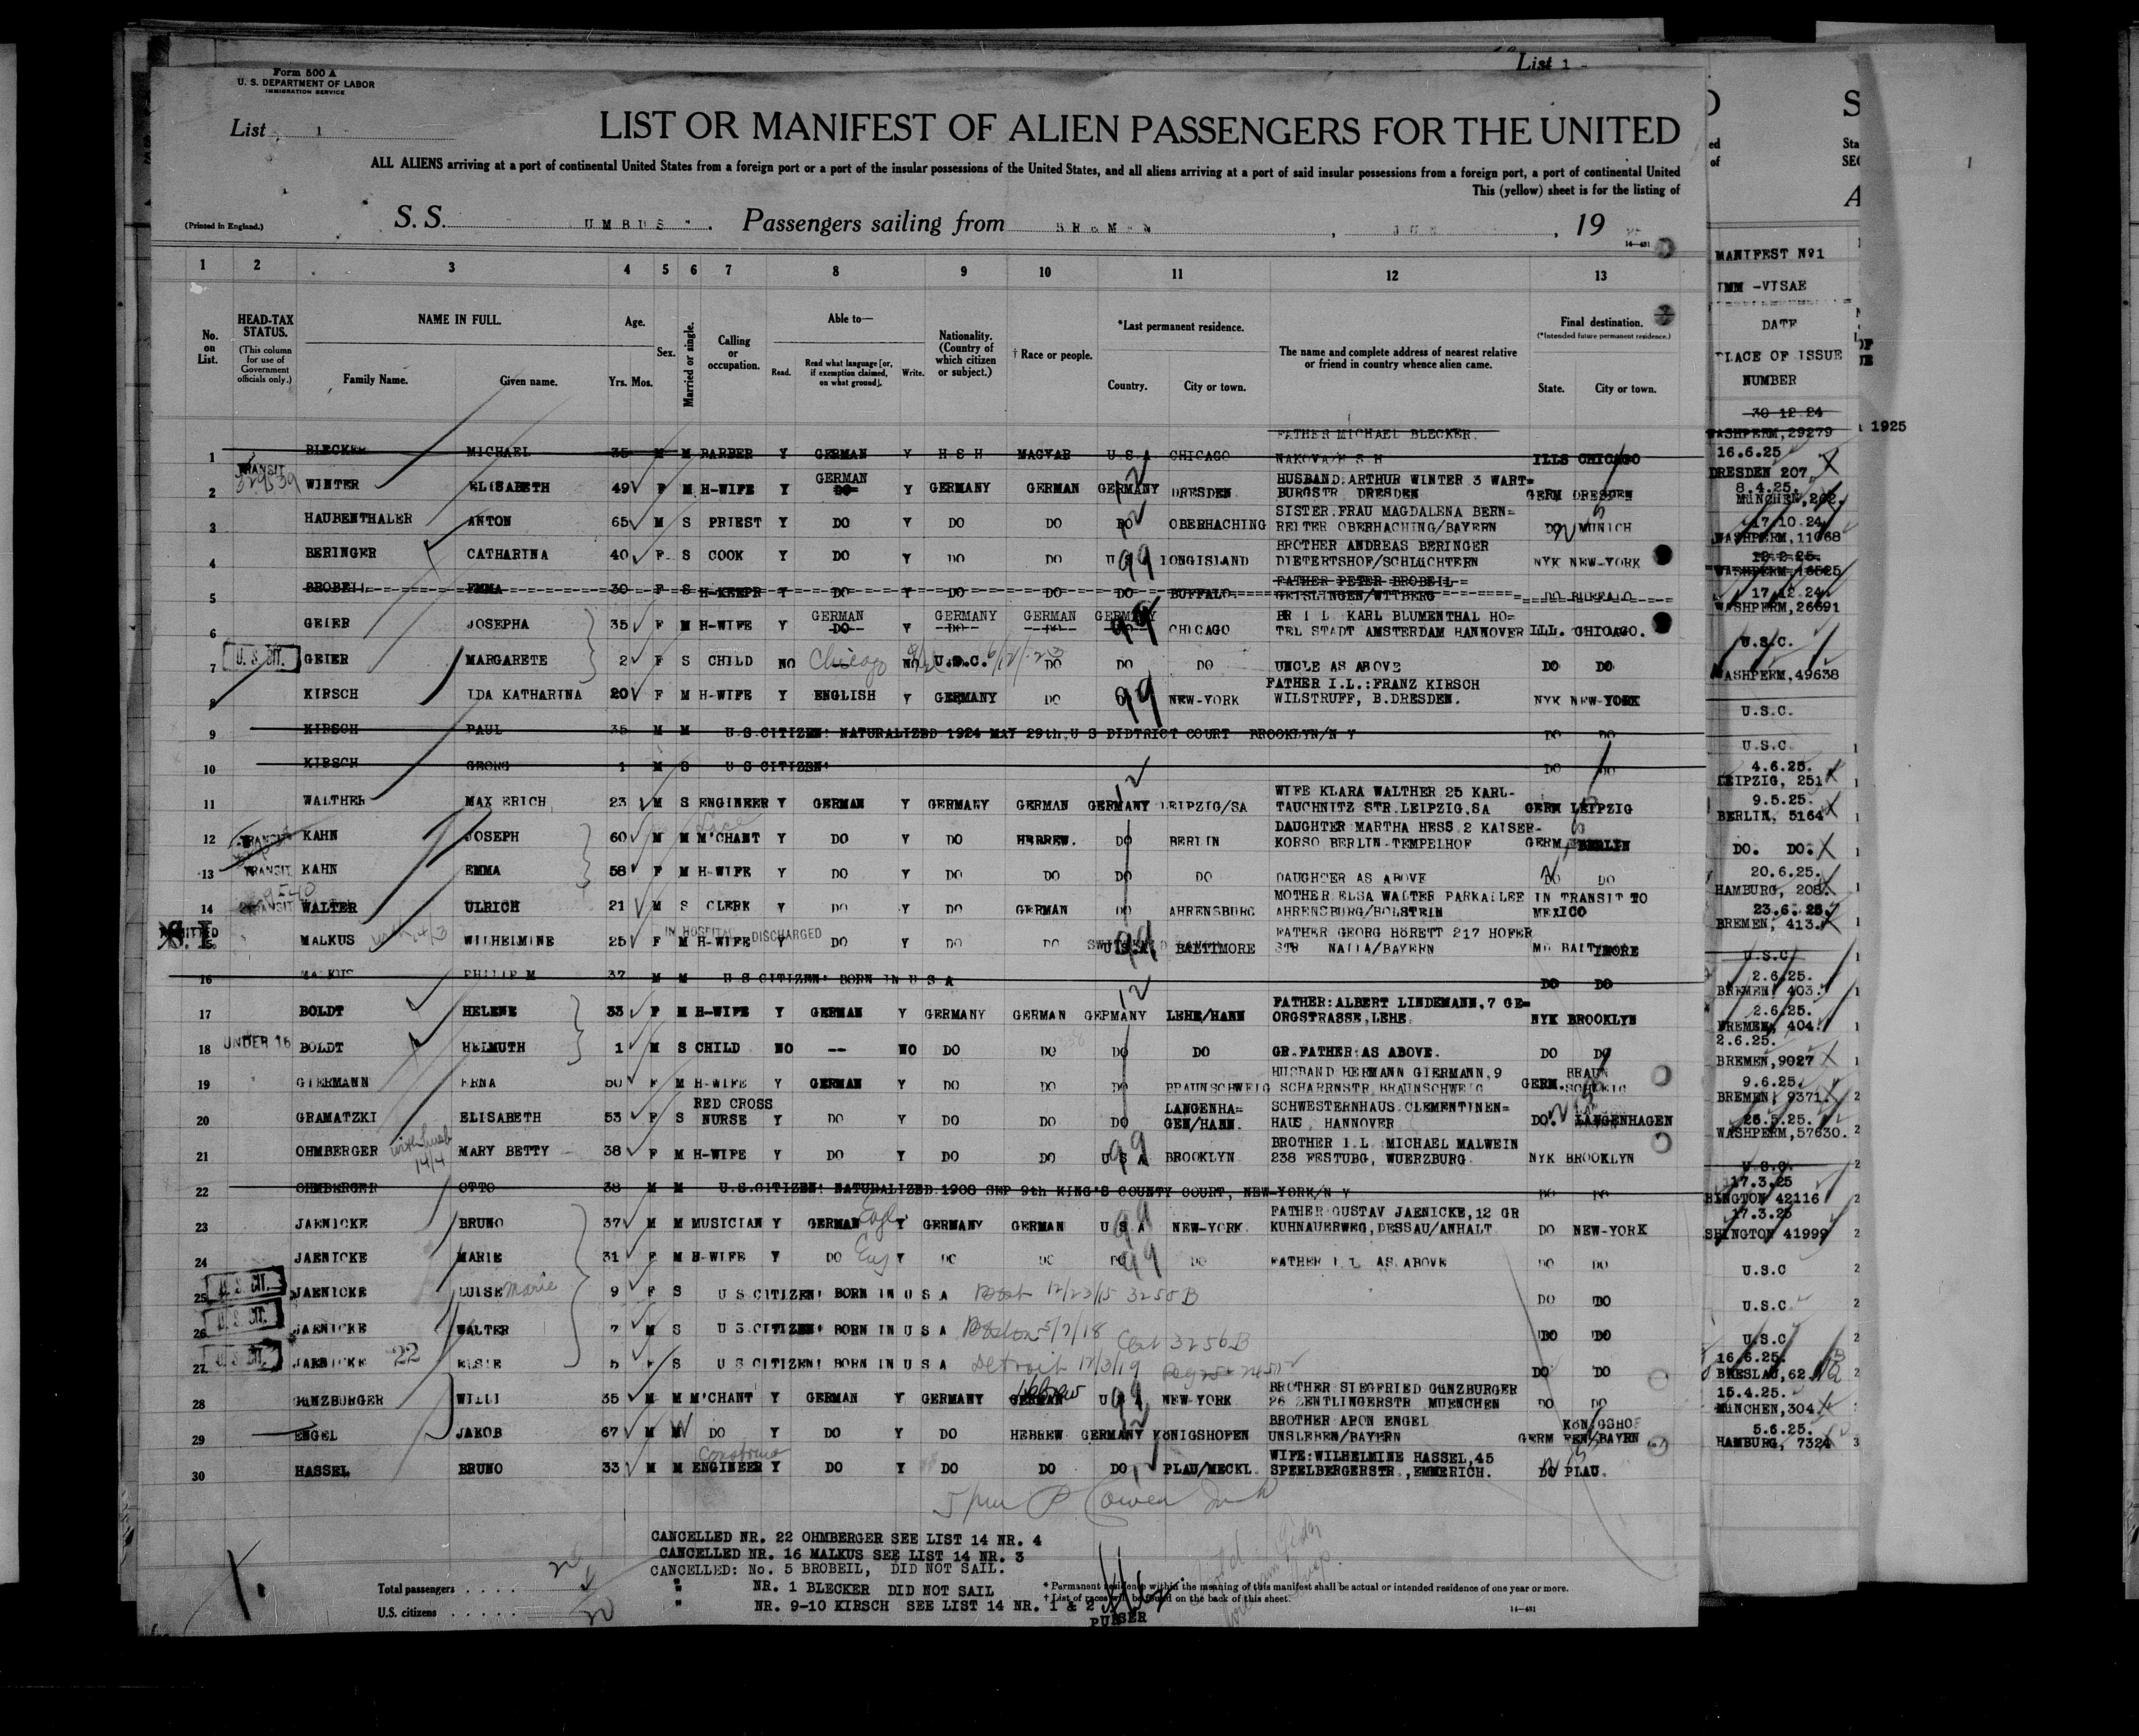 List 1 -
Form 500 A
U. S. DEPARTMENT OF LABOR
IMMIGRATION SERVICE
List 1
LIST OR MANIFEST OF ALIEN PASSENGERS FOR THE UNITED
ALL ALIENS arriving at a port of continental United States from a foreign port or a port of the insular possessions of the United States, and all aliens arriving at a port of said insular possessions from a foreign port, a port of continental United
This (yellow) sheet is for the listing of
(Printed in England.) S.S. UMBUS ". Passengers sailing from BREMEN , JUN , 19
14—431
1 2 3 4 5 6 7 8 9 10 11 12 13
No. on List.
HEAD-TAX STATUS.
(This column for use of Government officials only.)
NAME IN FULL.
Family Name. Given name.
Age.
Yrs. Mos.
Sex.
Married or single.
Calling or occupation.
Able to—
Read. Read what language [or, if exemption claimed, on what ground]. Write.
Nationality. (Country of which citizen or subject.)
† Race or people.
*Last permanent residence.
Country. City or town.
The name and complete address of nearest relative or friend in country whence alien came.
Final destination.
(*Intended future permanent residence.)
State. City or town.
MANIFEST No1
IMM -VISAE
DATE
PLACE OF ISSUE
NUMBER
FATHER MICHAEL BLECKER 30 12 24
1 BLECKER MICHAEL 35 M M BARBER Y GERMAN Y H S H MAGYAR U.S.A CHICAGO NAKOVA H S H ILLS CHICAGO WASHPERM,29279 1925
2 TRANSIT WINTER ELISABETH 49 F M H-WIFE Y GERMAN DO Y GERMANY GERMAN GERMANY DRESDEN HUSBAND:ARTHUR WINTER 3 WART=
BURGSTR DRESDEN GERM DRESDEN 16.6.25 DRESDEN 207
3 HAUBENTHALER ANTON 65 M S PRIEST Y DO Y DO DO DO OBERHACHING SISTER.FRAU MAGDALENA BERN=
REITER OBERHACHING/BAYERN DO MUNICH 8.4.25. MÜNCHEN,262.
4 BERINGER CATHARINA 40 F S COOK Y DO Y DO DO U S A LONGISLAND BROTHER ANDREAS BERINGER
DIETERTSHOF/SCHLÜCHTERN NYK NEW-YORK 17.10 24 WASHPERM,11068
5 BROBEIL EMMA 30 F S H-KEEPR Y DO Y DO DO DO BUFFALO FATHER PETER BROBEIL
GEISLINGEN/WTTBERG DO BUFFALO 12.2.25. WASHPERM,16525
6 GEIER JOSEPHA 35 F M H-WIFE Y GERMAN DO Y GERMANY DO GERMAN DO GERMANY CHICAGO BR I L KARL BLUMENTHAL HO=
TEL STADT AMSTERDAM HANNOVER ILL. CHICAGO. 17.12 24. WASHPERM,26691
7 U. S. CIT. GEIER MARGARETE 2 F S CHILD NO Chicago NO U.S.C. DO DO DO UNCLE AS ABOVE DO DO U.S.C.
8 KIRSCH IDA KATHARINA 20 F M H-WIFE Y ENGLISH Y GERMANY DO DO NEW-YORK FATHER I.L.:FRANZ KIRSCH
WILSTRUFF, B.DRESDEN. NYK NEW-YORK WASHPERM,49638
9 KIRSCH PAUL 35 M M U.S.CITIZEN! NATURALIZED 1924 MAY 29th,U S DIDTRICT COURT BROOKLYN/N Y DO DO U.S.C.
10 KIRSCH GEORG 1 M S U S CITIZEN! DO DO U.S.C.
11 WALTHER MAX ERICH 23 M S ENGINEER Y GERMAN Y GERMANY GERMAN GERMANY LEIPZIG/SA WIFE KLARA WALTHER 25 KARL-
TAUCHNITZ STR.LEIPZIG,SA GERM LEIPZIG 4.6.25. LEIPZIG, 251
12 TRANSIT KAHN JOSEPH 60 M M M'CHANT Y DO Y DO HEBREW. DO BERLIN DAUGHTER MARTHA HESS 2 KAISER-
KORSO BERLIN-TEMPELHOF GERM. BERLIN 9.5.25. BERLIN, 5164
13 TRANSIT KAHN EMMA 58 F M H-WIFE Y DO Y DO DO DO DO DAUGHTER AS ABOVE DO DO DO. DO.
14 TRANSIT WALTER ULRICH 21 M S CLERK Y DO Y DO GERMAN DO AHRENSBURG MOTHER ELSA WALTER PARKALLEE
AHRENSBURG/HOLSTEIN IN TRANSIT TO MEXICO 20.6.25. HAMBURG, 208.
ADMITTED S.I.
15 MALKUS WILHELMINE 25 F M H-WIFE IN HOSPITAL DISCHARGED Y DO Y DO DO U.S.A BALTIMORE FATHER GEORG HÖRETT 217 HOFER
STR NAILA/BAYERN MD BALTIMORE 23.6.25. BREMEN, 413.
16 MALKUS PHILIP M 37 M M U S CITIZEN! BORN IN U S A DO DO U.S.C
17 BOLDT HELENE 33 F M H-WIFE Y GERMAN Y GERMANY GERMAN GERMANY LEHE/HANN FATHER:ALBERT LINDEMANN,7 GE=
ORGSTRASSE,LEHE. NYK BROOKLYN 2.6.25. BREMEN, 403.
18 UNDER 16 BOLDT HELMUTH 1 M S CHILD NO -- NO DO DO DO DO GR.FATHER:AS ABOVE. DO DO 2.6.25. BREMEN, 404.
19 GIERMANN ERNA 50 F M H-WIFE Y GERMAN Y DO DO DO BRAUNSCHWEIG HUSBAND HERMANN GIERMANN,9
SCHARRNSTR,BRAUNSCHWEIG GERM. BRAUN SCHWEIG 2.6.25. BREMEN,9027
20 GRAMATZKI ELISABETH 53 F S RED CROSS NURSE Y DO Y DO DO DO LANGENHA=
GEN/HANN. SCHWESTERNHAUS CLEMENTINEN=
HAUS, HANNOVER DO. LANGENHAGEN 9.6.25. BREMEN, 9371.
21 OHMBERGER MARY BETTY 38 F M H-WIFE Y DO Y DO DO U S A BROOKLYN BROTHER I.L MICHAEL MALWEIN
238 FESTUBG, WUERZBURG. NYK BROOKLYN 26.5.25. WASHPERM,57630.
22 OHMBERGER OTTO 38 M M U.S.CITIZEN! NATURALIZED.1908 SEP 9th KING'S COUNTY COURT, NEW-YORK/N Y DO DO U.S.C.
23 JAENICKE BRUNO 37 M M MUSICIAN Y GERMAN Engl Y GERMANY GERMAN U S A NEW-YORK. FATHER GUSTAV JAENICKE,12 GR
KUHNAUERWEG,DESSAU/ANHALT DO NEW-YORK 17.3.25 HINGTON 42116
24 JAENICKE MARIE 31 F M H-WIFE Y DO Eng Y DO DO DO DO FATHER I L AS ABOVE DO DO 17.3.25 SHINGTON 41999
25 U. S. CIT. JAENICKE LUISE Marie 9 F S U S CITIZEN! BORN IN U S A 12/23/15 3250 B DO DO U.S.C
26 U. S. CIT. JAENICKE WALTER 7 M S U S.CITIZEN! BORN IN U S A Boston 5/7/18 Cert 3256 B DO DO U.S.C.
27 U. S. CIT. JAENICKE 22 ELSIE 5 F S U S CITIZEN! BORN IN U S A Detroit 12/3/19 DO DO U.S.C
28 GÜNZBURGER WILLI 35 M M M'CHANT Y GERMAN Y GERMANY GERMAN Hebrew U S A NEW-YORK BROTHER SIEGFRIED GÜNZBURGER
26 ZENTLINGERSTR MUENCHEN DO DO 16.6.25. BRESLAU,62
29 ENGEL JAKOB 67 M W DO Y DO Y DO HEBREW GERMANY KÖNIGSHOFEN BROTHER ARON ENGEL
UNSLEBEN/BAYERN GERM KÖNIGSHOF FEN/BAYRN 15.4.25. MÜNCHEN,304
30 HASSEL BRUNO 33 M M ENGINEER Y DO Y DO DO DO PLAU/MECKL. WIFE:WILHELMINE HASSEL,45
SPEELBERGERSTR.,EMMERICH. DO PLAU. 5.6.25. HAMBURG, 7324
CANCELLED NR. 22 OHMBERGER SEE LIST 14 NR. 4
CANCELLED NR. 16 MALKUS SEE LIST 14 NR. 3
CANCELLED: No. 5 BROBEIL, DID NOT SAIL.
" NR. 1 BLECKER DID NOT SAIL
" NR. 9-10 KIRSCH SEE LIST 14 NR. 1 & 2
PURSER
Total passengers . . . .
U.S. citizens . . . . .
* Permanent residence within the meaning of this manifest shall be actual or intended residence of one year or more.
† List of races will be found on the back of this sheet.
14—431